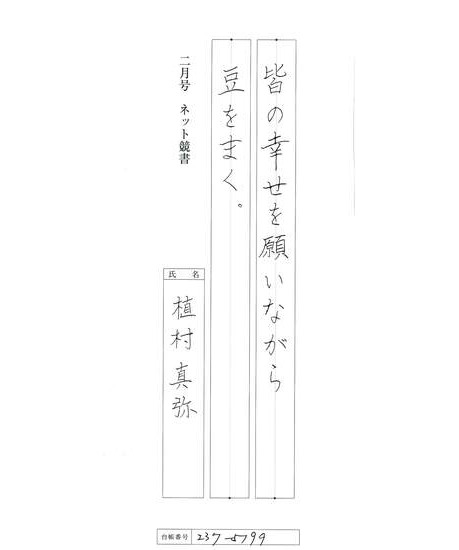 皆の幸せを願いながら
豆をまく。
二月号 ネット競書
氏 名
植村真弥
台帳番号 237-5799